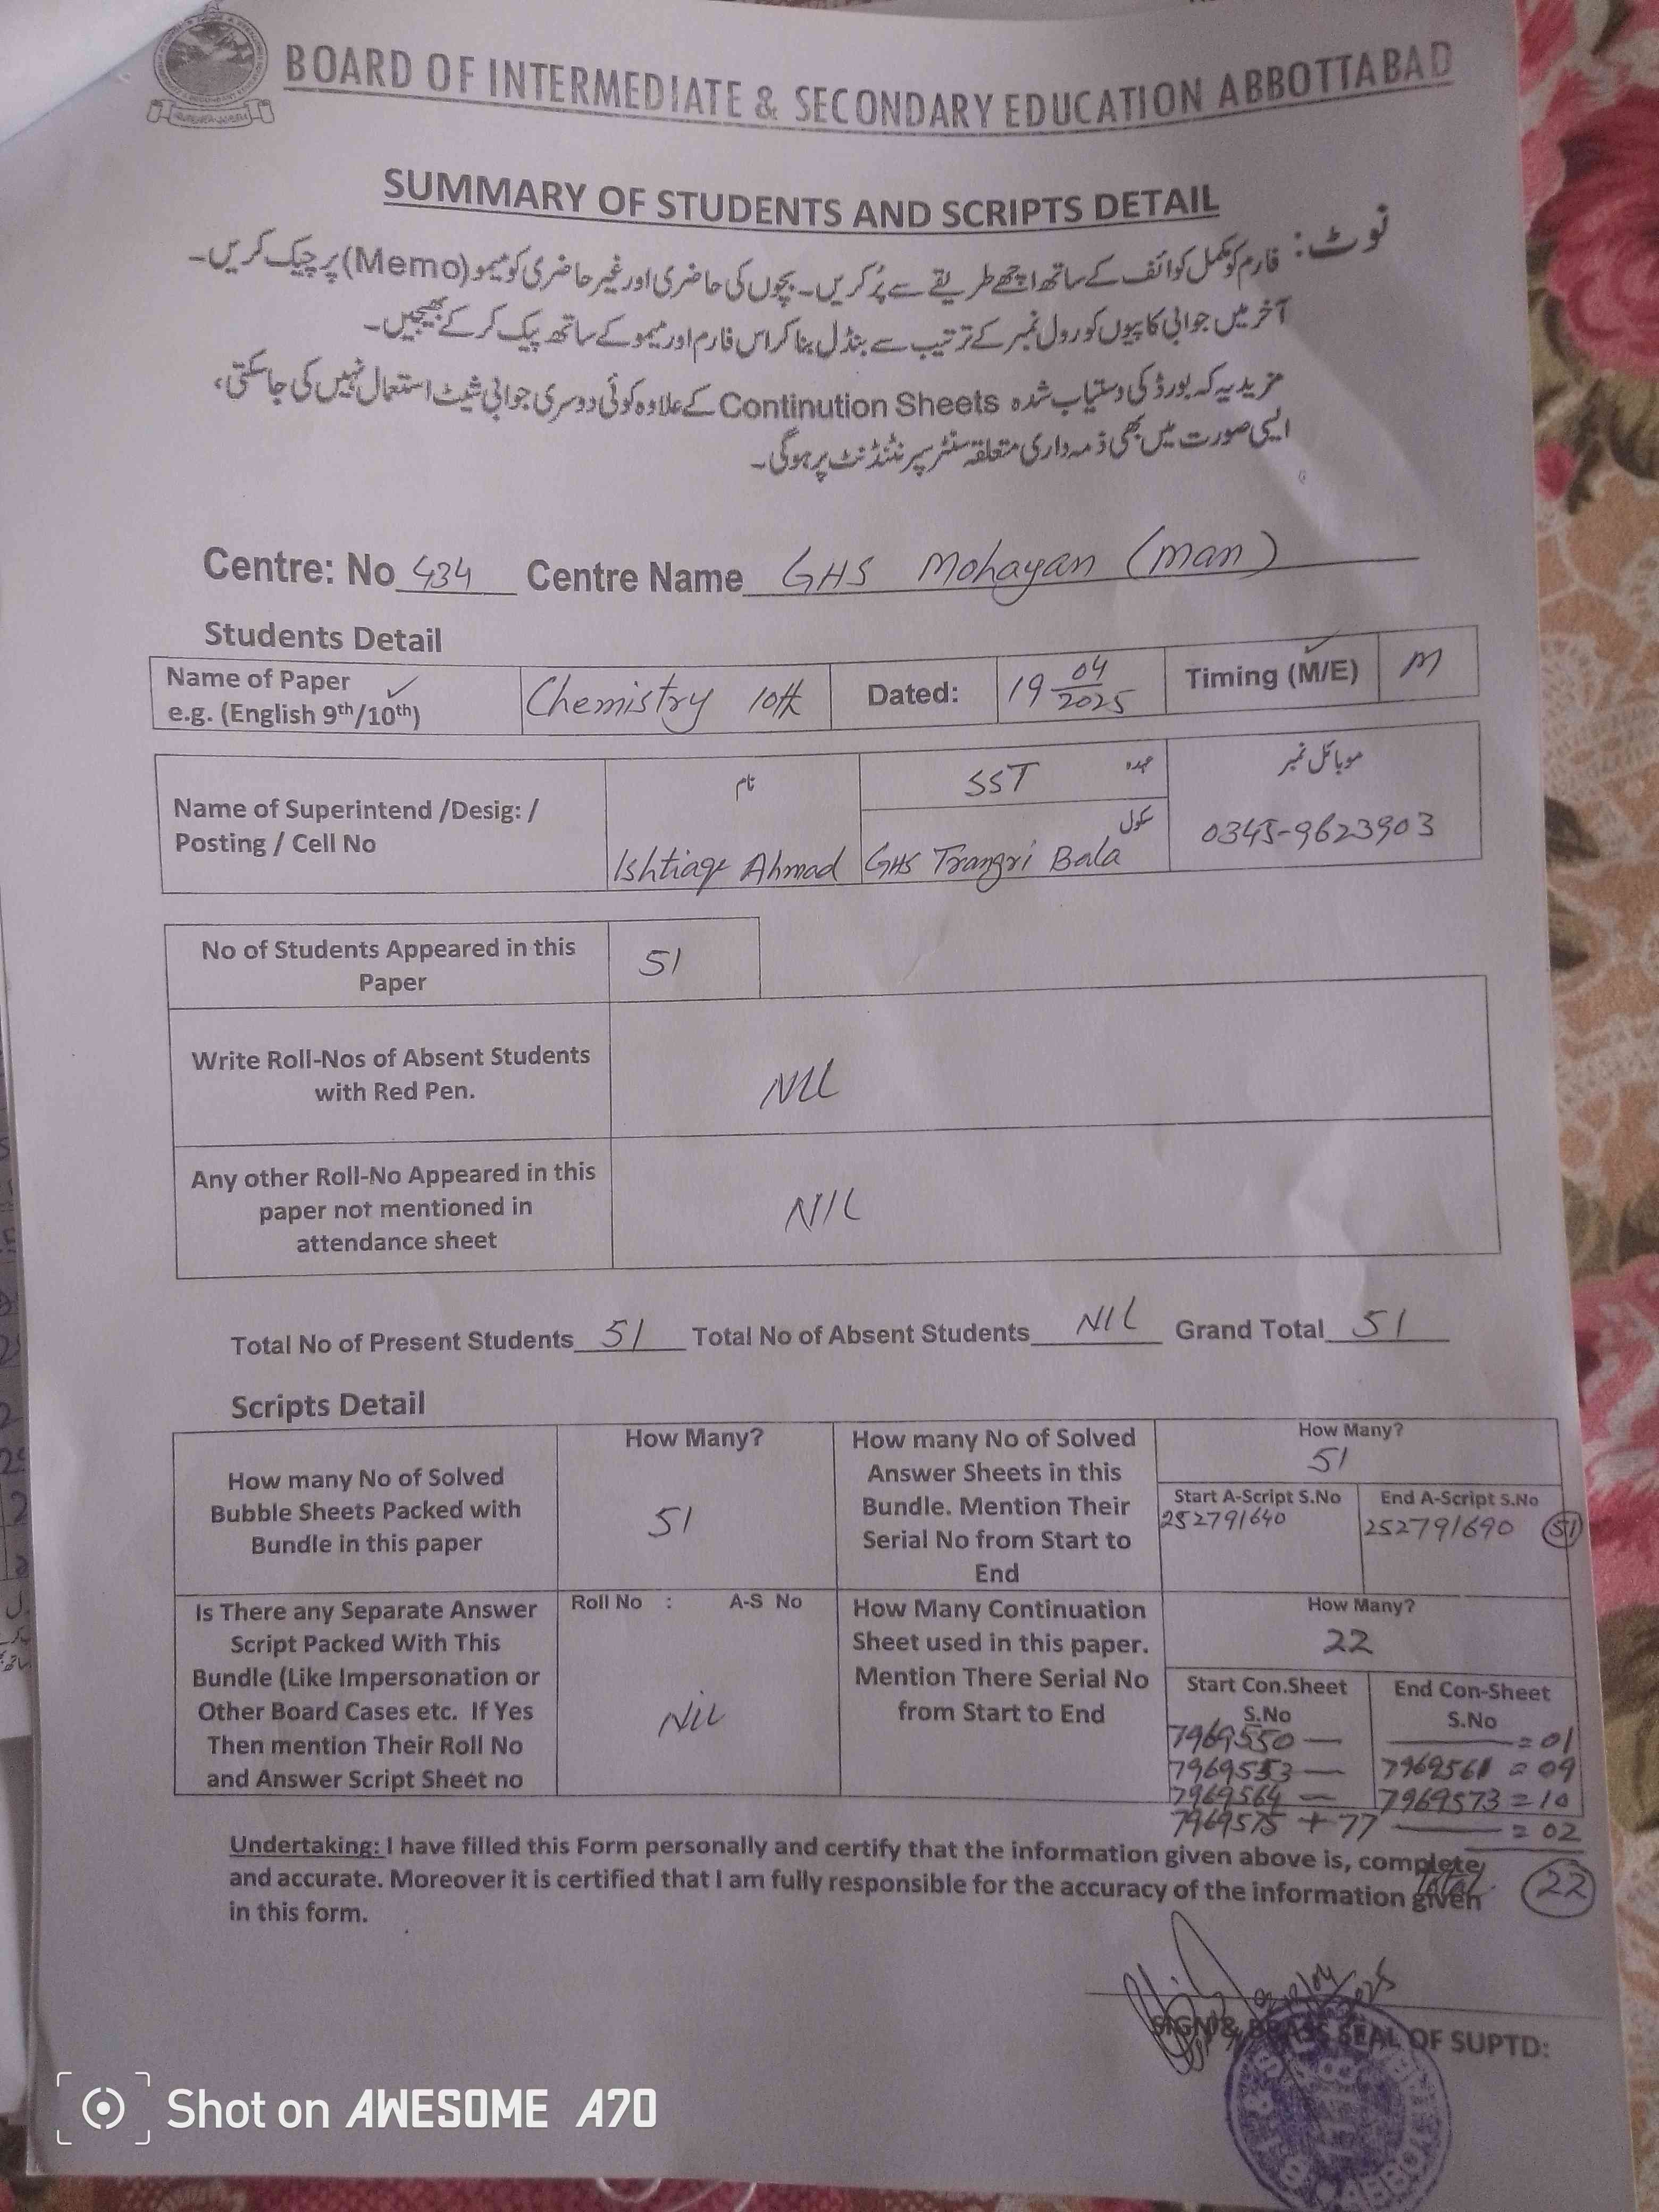 BOARD OF INTERMEDIATE & SECONDARY EDUCATION ABBOTTABAD
SUMMARY OF STUDENTS AND SCRIPTS DETAIL
نوٹ: فارم کو مکمل کوائف کے ساتھ اچھے طریقے سے پُر کریں۔ بچوں کی حاضری اور غیر حاضری کو میمو (Memo) پر چیک کریں۔
آخر میں جوابی کاپیوں کو رول نمبر کے ترتیب سے بنڈل بنا کر اس فارم اور میمو کے ساتھ پیک کر کے بھیجیں۔
مزید یہ کہ بورڈ کی دستیاب شدہ Continution Sheets کے علاوہ کوئی دوسری جوابی شیٹ استعمال نہیں کی جا سکتی،
ایسی صورت میں بھی ذمہ داری متعلقہ سنٹر سپرنٹنڈنٹ پر ہوگی۔
Centre: No 434 Centre Name GHS Mohayan (man)
Students Detail
Name of Paper ✓
e.g. (English 9th/10th)
Chemistry 10th
Dated:
19 04/2025
Timing (M/E) ✓
M
Name of Superintend /Desig: /
Posting / Cell No
نام
Ishtiaqe Ahmad
عہدہ
SST
سکول
GHS Trangri Bala
موبائل نمبر
0345-9623903
No of Students Appeared in this
Paper
51
Write Roll-Nos of Absent Students
with Red Pen.
NIL
Any other Roll-No Appeared in this
paper not mentioned in
attendance sheet
NIL
Total No of Present Students 51 Total No of Absent Students NIL Grand Total 51
Scripts Detail
How many No of Solved
Bubble Sheets Packed with
Bundle in this paper
How Many?
51
How many No of Solved
Answer Sheets in this
Bundle. Mention Their
Serial No from Start to
End
How Many?
51
Start A-Script S.No
252791640
End A-Script S.No
252791690 51
Is There any Separate Answer
Script Packed With This
Bundle (Like Impersonation or
Other Board Cases etc. If Yes
Then mention Their Roll No
and Answer Script Sheet no
Roll No : A-S No
Nil
How Many Continuation
Sheet used in this paper.
Mention There Serial No
from Start to End
How Many?
22
Start Con.Sheet
S.No
End Con-Sheet
S.No
7969550 — = 01
7969553 — 7969561 = 09
7969564 — 7969573 = 10
7969575 + 77 — = 02
Total 22
Undertaking: I have filled this Form personally and certify that the information given above is, complete
and accurate. Moreover it is certified that I am fully responsible for the accuracy of the information given
in this form.
SIGN & BRASS SEAL OF SUPTD:
Shot on AWESOME A70